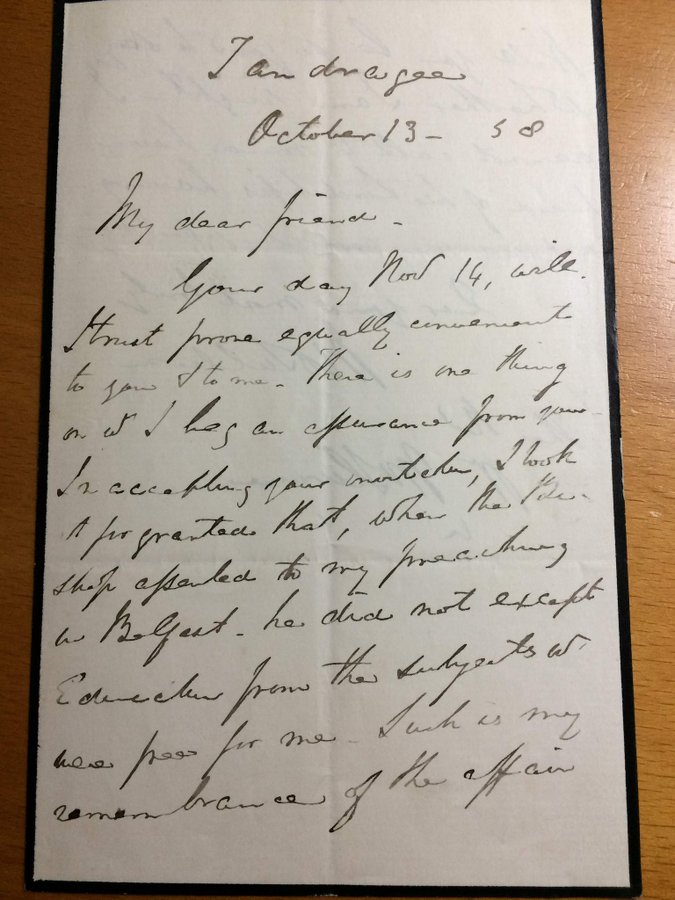 Tandragee
October 13 - 58
My dear friend -
Your day Nov 14, will
I trust prove equally convenient
to you & to me - There is one thing
on wh I beg an assurance from you -
In accepting your invitation, I took
it for granted that, when the Bi-
shop assented to my preaching
in Belfast - he did not except
Education from the subjects wh
were free for me - Such is my
remembrance of the affair